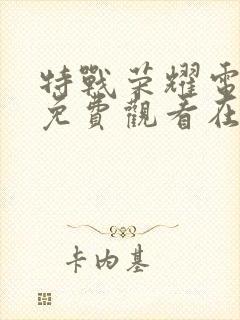 特戰荣耀電
免費觀看在
卡内基